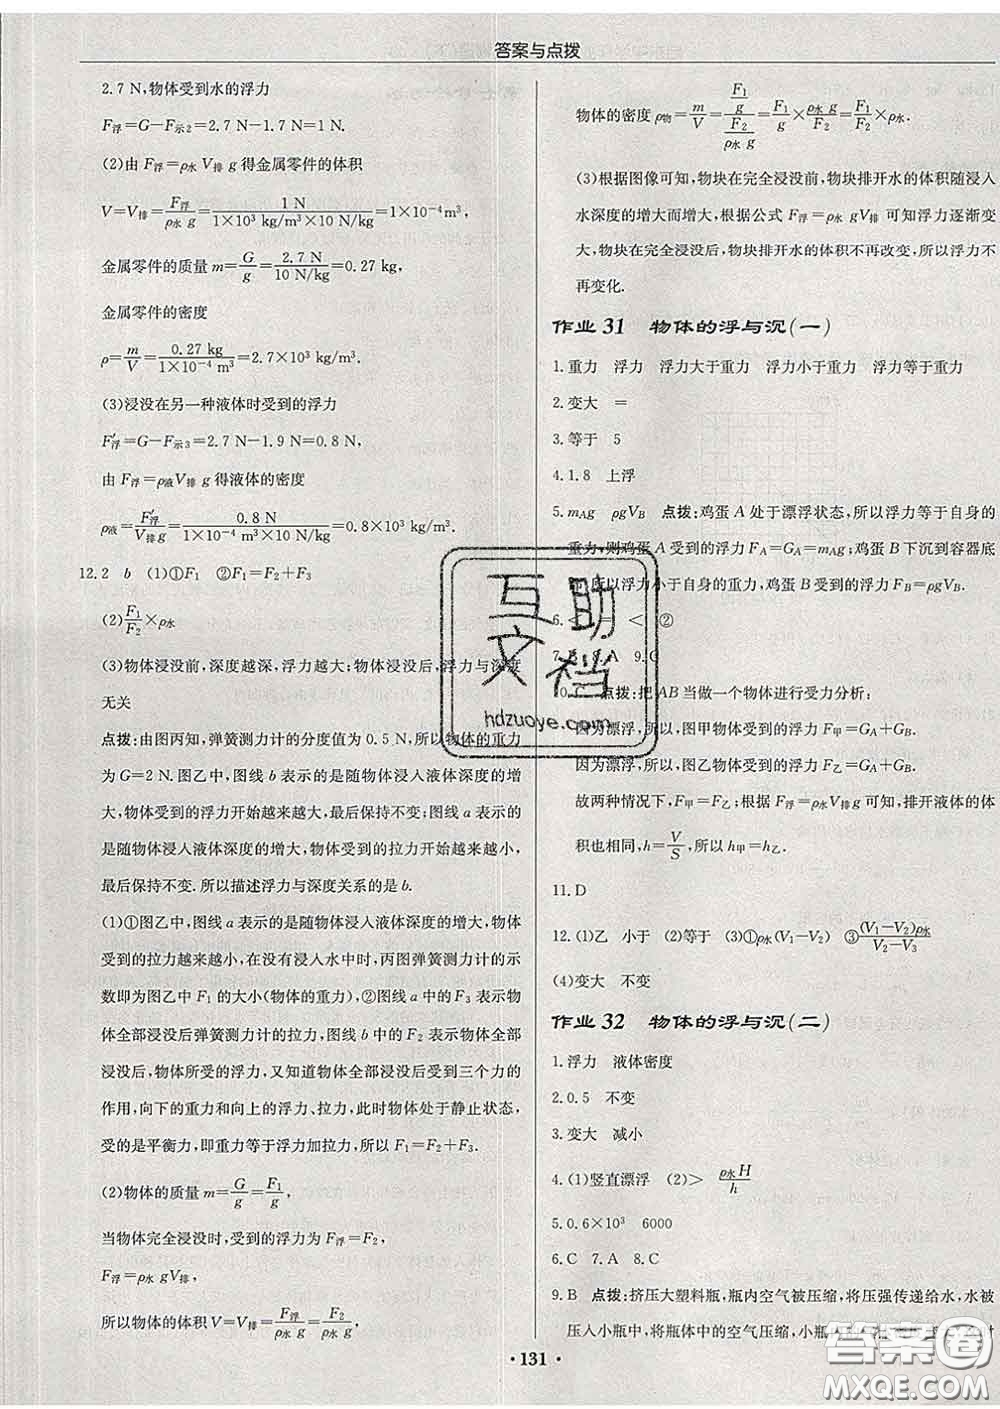 答案与点拨
2.7 N,物体受到水的浮力
F浮=G−F示2=2.7 N−1.7 N=1 N.
(2)由 F浮=ρ水 V排 g 得金属零件的体积
V=V排=F浮/(ρ水 g)=1 N/(1×10³ kg/m³×10 N/kg)=1×10⁻⁴m³,
金属零件的质量 m=G/g=2.7 N/(10 N/kg)=0.27 kg,
金属零件的密度
ρ=m/V=0.27 kg/(1×10⁻⁴ m³)=2.7×10³ kg/m³.
(3)浸没在另一种液体时受到的浮力
F′浮=G−F示3=2.7 N−1.9 N=0.8 N,
由 F浮=ρ液V排 g 得液体的密度
ρ液=F′浮/(V排 g)=0.8 N/(1×10⁻⁴ m³×10 N/kg)=0.8×10³ kg/m³.
12.2 b (1)①F₁ ②F₁=F₂+F₃
(2)F₁/F₂×ρ水
(3)物体浸没前,深度越深,浮力越大;物体浸没后,浮力与深度
无关
点拨:由图丙知,弹簧测力计的分度值为 0.5 N,所以物体的重力
为 G=2 N.图乙中,图线 b 表示的是随物体浸入液体深度的增
大,物体受到的浮力开始越来越大,最后保持不变;图线 a 表示的
是随物体浸入液体深度的增大,物体受到的拉力开始越来越小,
最后保持不变.所以描述浮力与深度关系的是 b.
(1)①图乙中,图线 a 表示的是随物体浸入液体深度的增大,物体
受到的拉力越来越小,在没有浸入水中时,丙图弹簧测力计的示
数即为图乙中 F₁ 的大小(物体的重力),②图线 a 中的 F₃ 表示物
体全部浸没后弹簧测力计的拉力,图线 b 中的 F₂ 表示物体全部
浸没后,物体所受的浮力,又知道物体全部浸没后受到三个力的
作用,向下的重力和向上的浮力、拉力,此时物体处于静止状态,
受的是平衡力,即重力等于浮力加拉力,所以 F₁=F₂+F₃.
(2)物体的质量 m=G/g=F₁/g,
当物体完全浸没时,受到的浮力为 F浮=F₂,
F浮=ρ水 gV排,
所以物体的体积 V=V排=F浮/(ρ水 g)=F₂/(ρ水 g),
物体的密度 ρ物=m/V=(F₁/g)/(F₂/(ρ水 g))=F₁/g×ρ水 g/F₂=F₁/F₂×ρ水.
(3)根据图像可知,物块在完全浸没前,物块排开水的体积随浸入
水深度的增大而增大,根据公式 F浮=ρ水 gV排 可知浮力逐渐变
大,物块在完全浸没后,物块排开水的体积不再改变,所以浮力不
再变化.
作业 31 物体的浮与沉(一)
1.重力 浮力 浮力大于重力 浮力小于重力 浮力等于重力
2.变大 =
3.等于 5
4.1.8 上浮
5.mAg ρgVB 点拨:鸡蛋 A 处于漂浮状态,所以浮力等于自身的
重力,则鸡蛋 A 受到的浮力 FA=GA=mAg;鸡蛋 B 下沉到容器底
所以浮力小于自身的重力,鸡蛋 B 受到的浮力 FB=ρgVB.
6.< = < ②
7.B 8.A 9.C
10.C 点拨:把 AB 当做一个物体进行受力分析;
因为漂浮,所以,图甲物体受到的浮力 F甲=GA+GB.
因为漂浮,所以,图乙物体受到的浮力 F乙=GA+GB.
故两种情况下,F甲=F乙;根据 F浮=ρ水V排g 可知,排开液体的体
积也相同,h=V/S,所以 h甲=h乙.
11.D
12.(1)乙 小于 (2)等于 (3)①ρ水(V₁−V₂) ③(V₁−V₂)ρ水/(V₂−V₃)
(4)变大 不变
作业 32 物体的浮与沉(二)
1.浮力 液体密度
2.0.5 不变
3.变大 减小
4.(1)竖直漂浮 (2)> ρ水H/h
5.0.6×10³ 6000
6.C 7.A 8.C
9.B 点拨:挤压大塑料瓶,瓶内空气被压缩,将压强传递给水,水被
压入小瓶中,将瓶体中的空气压缩,小瓶
• 131 •
互助
文档
hdzuoye.com
答案圈
MXQE.COM